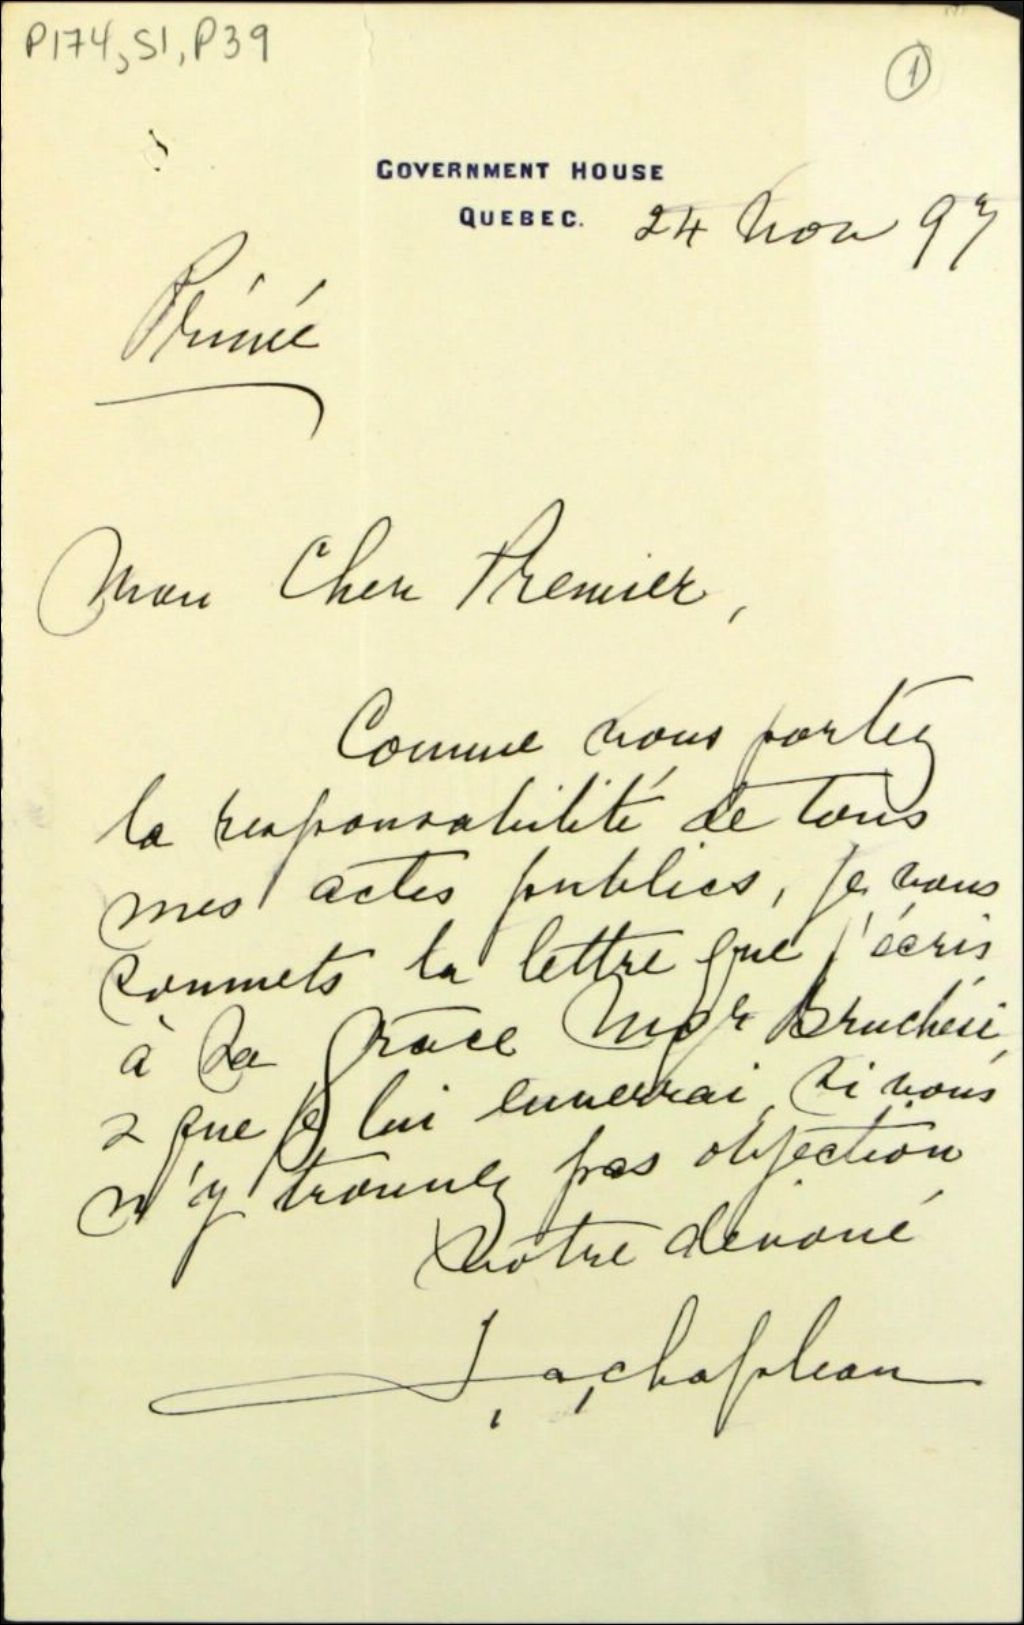 P174, S1, P39
1
GOVERNMENT HOUSE
QUEBEC. 24 Nov 97
Privée
Mon Cher Premier,
Comme vous portez
la responsabilité de tous
mes actes publics, je vous
soumets la lettre que j'écris
à Sa Grâce Mgr Bruchési,
& que je lui enverrai, si vous
n'y trouvez pas objection
Votre dévoué
J. A. Chapleau